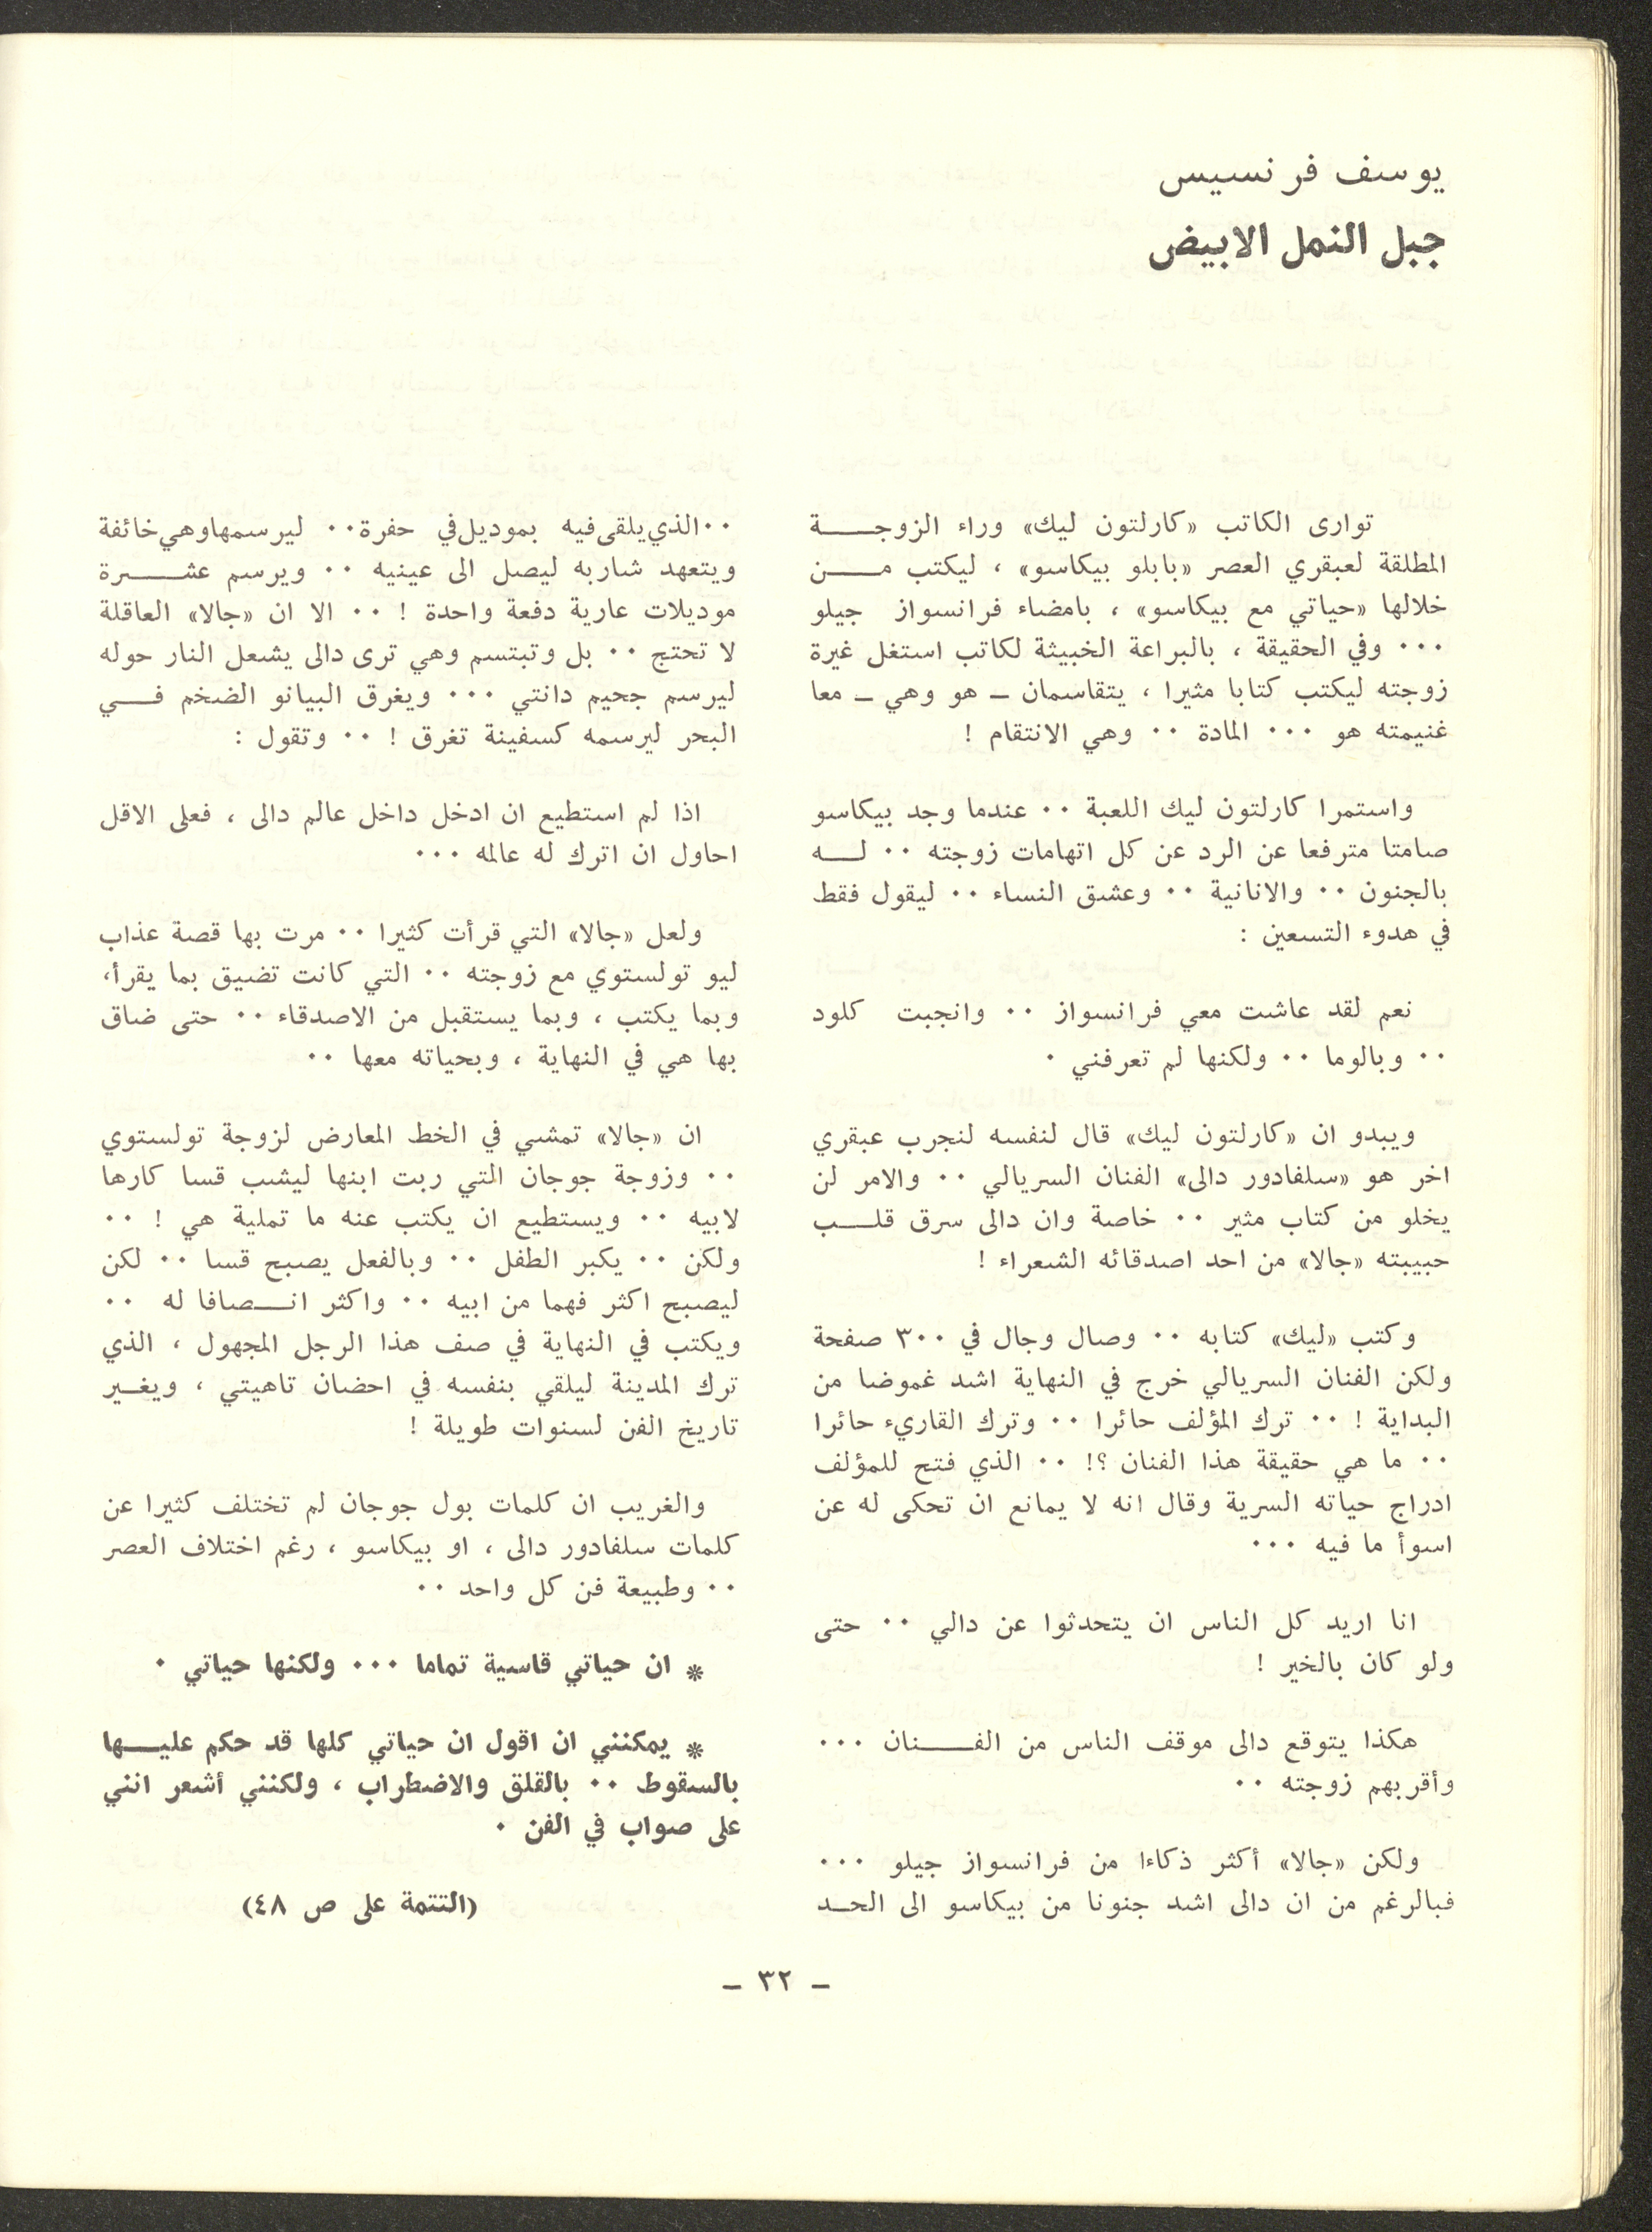 يوسف فرنسيس
جبل النمل الابيض
توارى الكاتب «كارلتون ليك» وراء الزوجــــة
المطلقة لعبقري العصر «بابلو بيكاسو» ، ليكتب مــــن
خلالها «حياتي مع بيكاسو» ، بامضاء فرانسواز جيلو
٠٠٠ وفي الحقيقة ، بالبراعة الخبيثة لكاتب استغل غيرة
زوجته ليكتب كتابا مثيرا ، يتقاسمان ــ هو وهي ــ معا
غنيمته هو ٠٠٠ المادة ٠٠ وهي الانتقام !
واستمرا كارلتون ليك اللعبة ٠٠ عندما وجد بيكاسو
صامتا مترفعا عن الرد عن كل اتهامات زوجته ٠٠ لــــه
بالجنون ٠٠ والانانية ٠٠ وعشق النساء ٠٠ ليقول فقط
في هدوء التسعين :
نعم لقد عاشت معي فرانسواز ٠٠ وانجبت كلود
٠٠ وبالوما ٠٠ ولكنها لم تعرفني ٠
ويبدو ان «كارلتون ليك» قال لنفسه لنجرب عبقري
اخر هو «سلفادور دالى» الفنان السريالي ٠٠ والامر لن
يخلو من كتاب مثير ٠٠ خاصة وان دالى سرق قلــــب
حبيبته «جالا» من احد اصدقائه الشعراء !
وكتب «ليك» كتابه ٠٠ وصال وجال في ٣٠٠ صفحة
ولكن الفنان السريالي خرج في النهاية اشد غموضا من
البداية ! ٠٠ ترك المؤلف حائرا ٠٠ وترك القاريء حائرا
٠٠ ما هي حقيقة هذا الفنان ؟! ٠٠ الذي فتح للمؤلف
ادراج حياته السرية وقال انه لا يمانع ان تحكى له عن
اسوأ ما فيه ٠٠٠
انا اريد كل الناس ان يتحدثوا عن دالي ٠٠ حتى
ولو كان بالخير !
هكذا يتوقع دالى موقف الناس من الفــــنان ٠٠٠
وأقربهم زوجته ٠٠
ولكن «جالا» أكثر ذكاءا من فرانسواز جيلو ٠٠٠
فبالرغم من ان دالى اشد جنونا من بيكاسو الى الحــد
٠٠الذي يلقى فيه بموديل في حفرة٠٠ ليرسمها وهي خائفة
ويتعهد شاربه ليصل الى عينيه ٠٠ ويرسم عشــــرة
موديلات عارية دفعة واحدة ! ٠٠ الا ان «جالا» العاقلة
لا تحتج ٠٠ بل وتبتسم وهي ترى دالى يشعل النار حوله
ليرسم جحيم دانتي ٠٠٠ ويغرق البيانو الضخم فــــي
البحر ليرسمه كسفينة تغرق ! ٠٠ وتقول :
اذا لم استطيع ان ادخل داخل عالم دالى ، فعلى الاقل
احاول ان اترك له عالمه ٠٠٠
ولعل «جالا» التي قرأت كثيرا ٠٠ مرت بها قصة عذاب
ليو تولستوي مع زوجته ٠٠ التي كانت تضيق بما يقرأ،
وبما يكتب ، وبما يستقبل من الاصدقاء ٠٠ حتى ضاق
بها هي في النهاية ، وبحياته معها ٠٠
ان «جالا» تمشي في الخط المعارض لزوجة تولستوي
٠٠ وزوجة جوجان التي ربت ابنها ليشب قسا كارها
لابيه ٠٠ ويستطيع ان يكتب عنه ما تملية هي ! ٠٠
ولكن ٠٠ يكبر الطفل ٠٠ وبالفعل يصبح قسا ٠٠ لكن
ليصبح اكثر فهما من ابيه ٠٠ واكثر انــــصافا له ٠٠
ويكتب في النهاية في صف هذا الرجل المجهول ، الذي
ترك المدينة ليلقي بنفسه في احضان تاهيتي ، ويغــير
تاريخ الفن لسنوات طويلة !
والغريب ان كلمات بول جوجان لم تختلف كثيرا عن
كلمات سلفادور دالى ، او بيكاسو ، رغم اختلاف العصر
٠٠ وطبيعة فن كل واحد ٠٠
* ان حياتي قاسية تماما ٠٠٠ ولكنها حياتي ٠
* يمكنني ان اقول ان حياتي كلها قد حكم عليــــها
بالسقوط ٠٠ بالقلق والاضطراب ، ولكنني أشعر انني
على صواب في الفن ٠
(التتمة على ص ٤٨)
ــ ٣٢ ــ